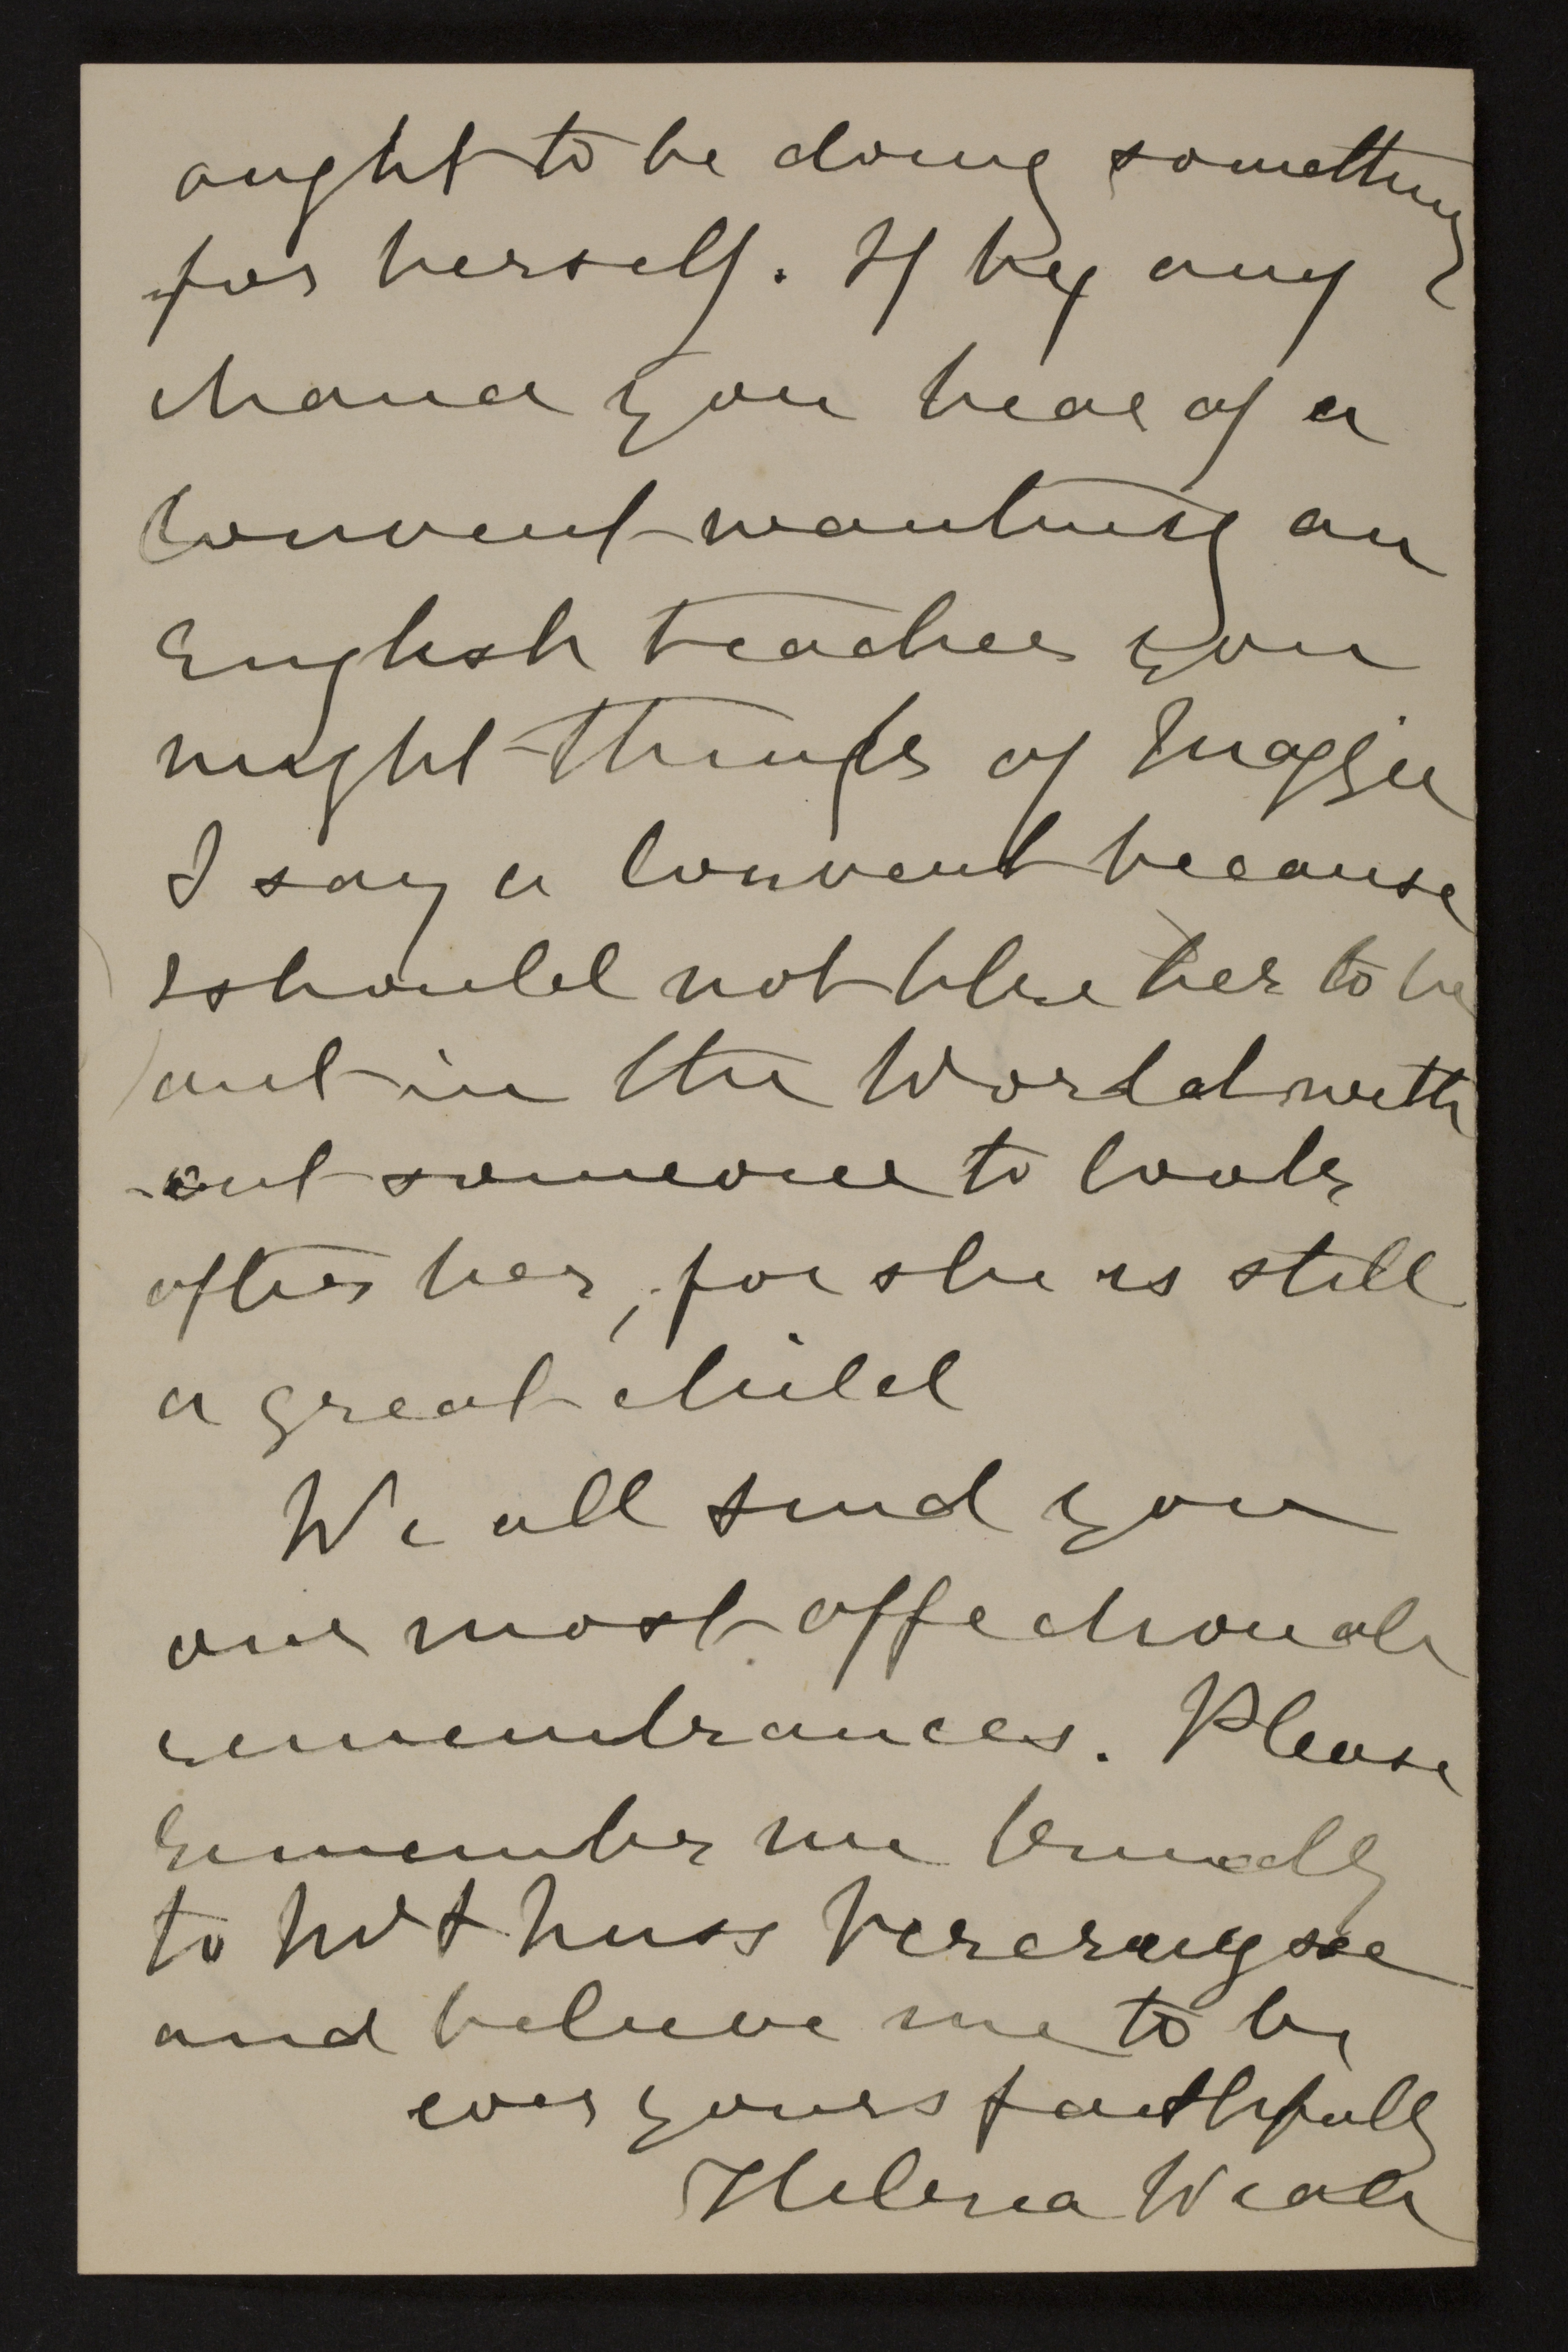 ought to be doing something
for herself. If by any
chance you hear of a
Convent wanting an
English teacher you
might think of Maggie
I say a Convent because
I should not like her to be
out in the World with
-out someone to look
after her, for she is still
a great child
We all send you
our most affectionate
remembrances. Please
remember me kindly
to Mr & Miss
and believe me to be
ever yours faithfully
Helena Weale